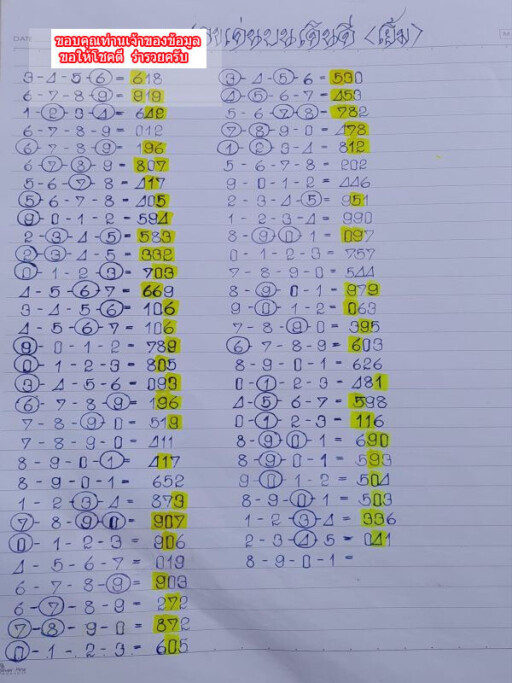 ขอบคุณท่านเจ้าของข้อมูล
ขอให้โชคดี ร่ำรวยครับ
3-4-5-6 = 618
6-7-8-9 = 919
1-2-3-4 = 642
6-7-8-9 = 012
6-7-8-9 = 196
6-7-8-9 = 807
5-6-7-8 = 417
5-6-7-8 = 405
9-0-1-2 = 594
2-3-4-5 = 583
2-3-4-5 = 332
0-1-2-3 = 703
4-5-6-7 = 669
3-4-5-6 = 106
4-5-6-7 = 106
9-0-1-2 = 789
0-1-2-3 = 805
3-4-5-6 = 093
6-7-8-9 = 196
7-8-9-0 = 519
7-8-9-0 = 411
8-9-0-1 = 417
8-9-0-1 = 652
1-2-3-4 = 873
7-8-9-0 = 907
0-1-2-3 = 906
4-5-6-7 = 019
6-7-8-9 = 903
6-7-8-9 = 272
7-8-9-0 = 872
0-1-2-3 = 605
3-4-5-6 = 530
4-5-6-7 = 453
5-6-7-8 = 782
7-8-9-0 = 478
1-2-3-4 = 812
5-6-7-8 = 202
9-0-1-2 = 446
2-3-4-5 = 951
1-2-3-4 = 990
8-9-0-1 = 097
0-1-2-3 = 757
7-8-9-0 = 544
8-9-0-1 = 979
9-0-1-2 = 063
7-8-9-0 = 395
6-7-8-9 = 603
8-9-0-1 = 626
0-1-2-3 = 481
4-5-6-7 = 598
0-1-2-3 = 116
8-9-0-1 = 690
8-9-0-1 = 593
9-0-1-2 = 504
8-9-0-1 = 503
1-2-3-4 = 336
2-3-4-5 = 041
8-9-0-1 =